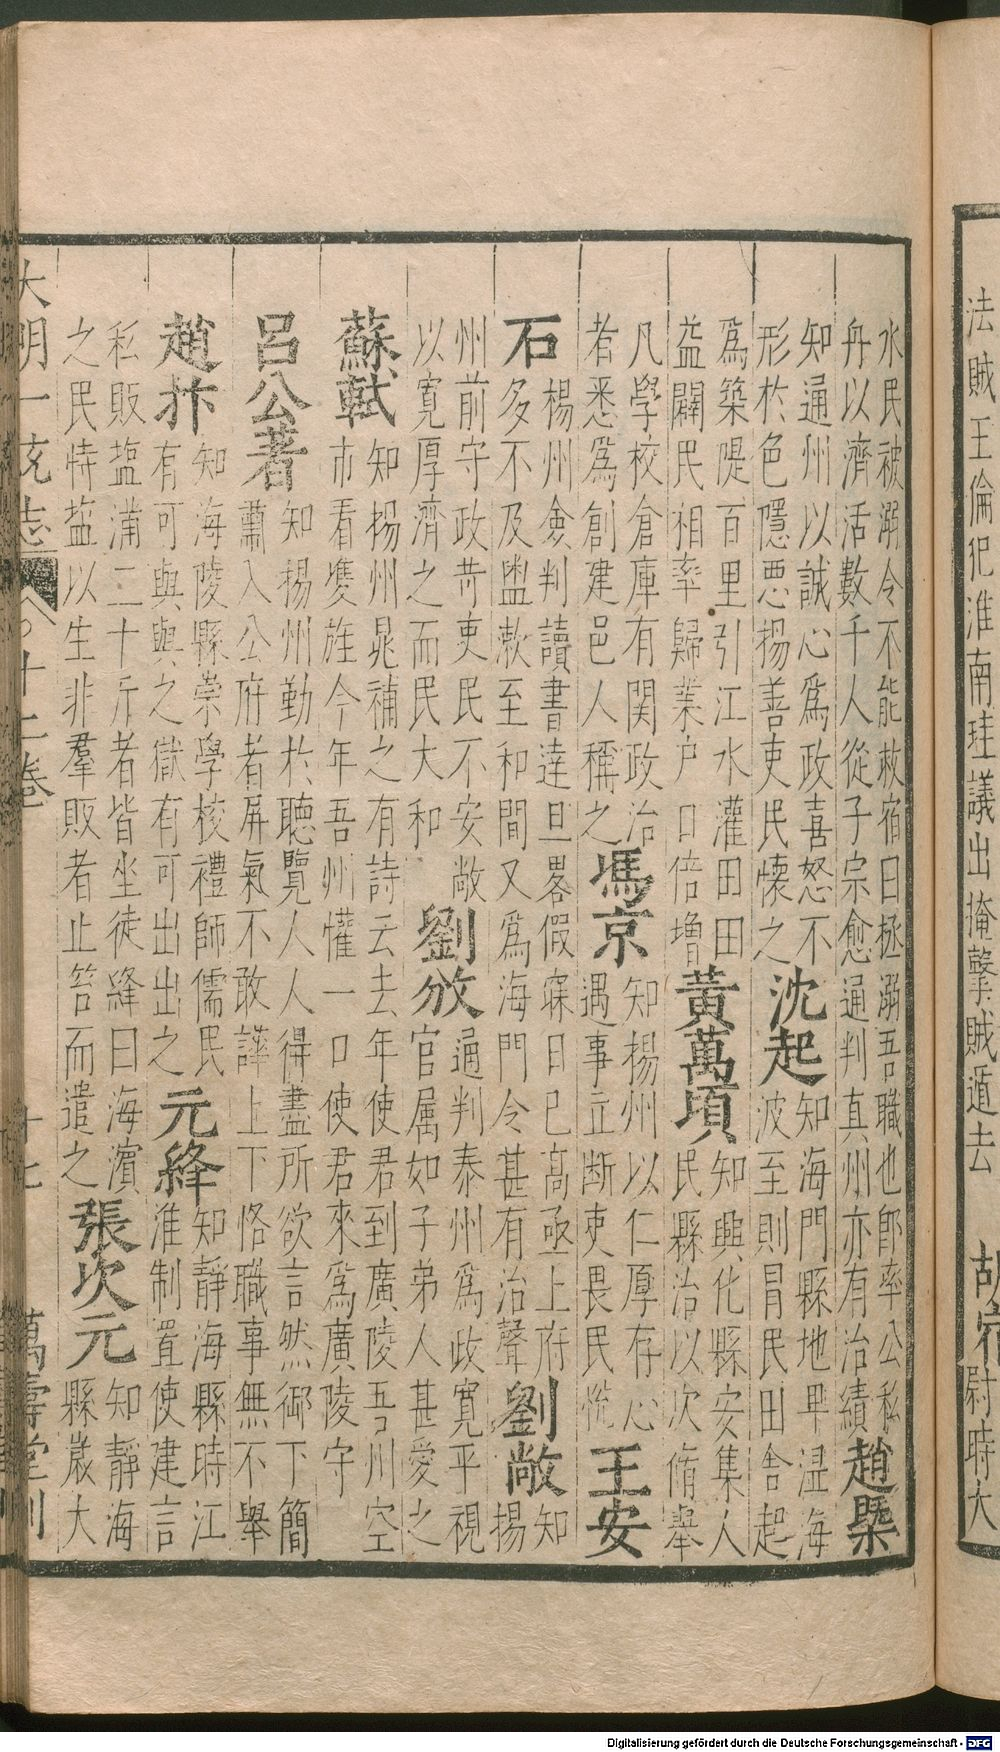 法賊王倫犯淮南珪議出掩擊賊遁去 胡宿尉時大
水民被溺令不能救宿曰拯溺吾職也卽率公私
舟以濟活數千人從子宗愈通判真州亦有治績趙槩
知通州以誠心爲政喜怒不
形於色隱惡揚善吏民懷之沈起知海門縣地卑溼海
波至則冐民田舍起
爲築隄百里引江水灌田田
益闢民相率歸業户口倍增黃萬頃知興化縣安集人
民縣治以次脩舉
凡學校倉庫有関政治
者悉爲創建邑人稱之馮京知揚州以仁厚存心
遇事立断吏畏民悅王安
石楊州僉判讀書達旦畧假寐日已高亟上府
多不及盥漱至和間又爲海門令甚有治聲劉敞知
揚
州前守政苛吏民不安敞
以寬厚濟之而民大和劉攽通判泰州爲政寬平視
官属如子弟人甚愛之
蘇軾知揚州晁補之有詩云去年使君到廣陵吾州空
市看雙旌今年吾州懽一口使君來爲廣陵守
呂公著知揚州勤於聽覽人人得盡所欲言然御下簡
肅入公府者屏氣不敢譁上下恪職事無不舉
趙抃知海陵縣崇學校禮師儒民
有可與與之獄有可出出之元絳知靜海縣時江
淮制置使建言
私販塩滿二十斤者皆坐徒絳曰海濱
之民恃塩以生非羣販者止笞而遣之張次元知靜海
縣歲大
大明一統志 卷之十二卷 十七 萬壽堂刊
Digitalisierung gefördert durch die Deutsche Forschungsgemeinschaft - DFG